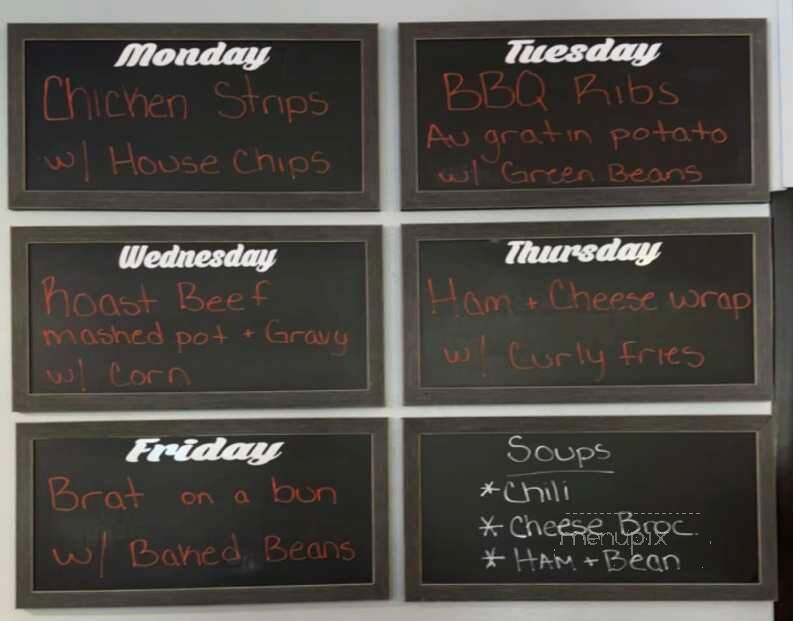 Monday
Chicken Strips
w/ House Chips
Tuesday
BBQ Ribs
Au gratin potato
w/ Green Beans
Wednesday
Roast Beef
mashed pot + Gravy
w/ Corn
Thursday
Ham + Cheese wrap
w/ Curly fries
Friday
Brat on a bun
w/ Baked Beans
Soups
*Chili
*Cheese Broc.
*HAM + Bean
menupix